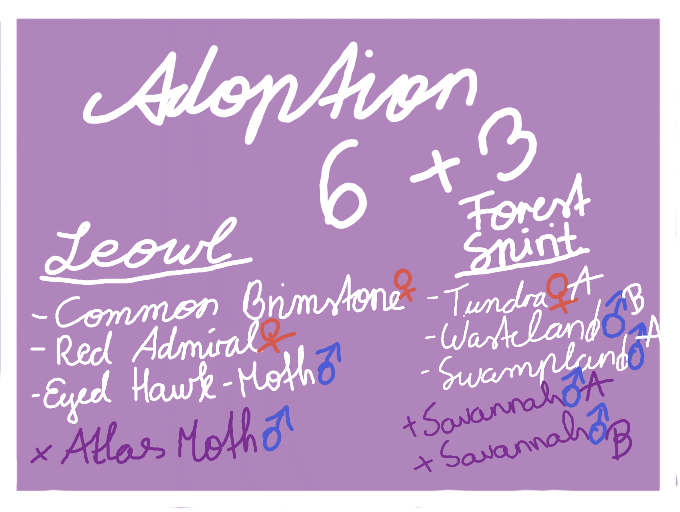 Adoption
6 + 3
Leowl
- Common Brimstone ♀
- Red Admiral ♀
- Eyed Hawk-Moth ♂
x Atlas Moth ♂
Forest
Spirit
- Tundra ♀ A
- Wasteland ♂ B
- Swampland ♂ A
+ Savannah ♂ A
+ Savannah ♂ B